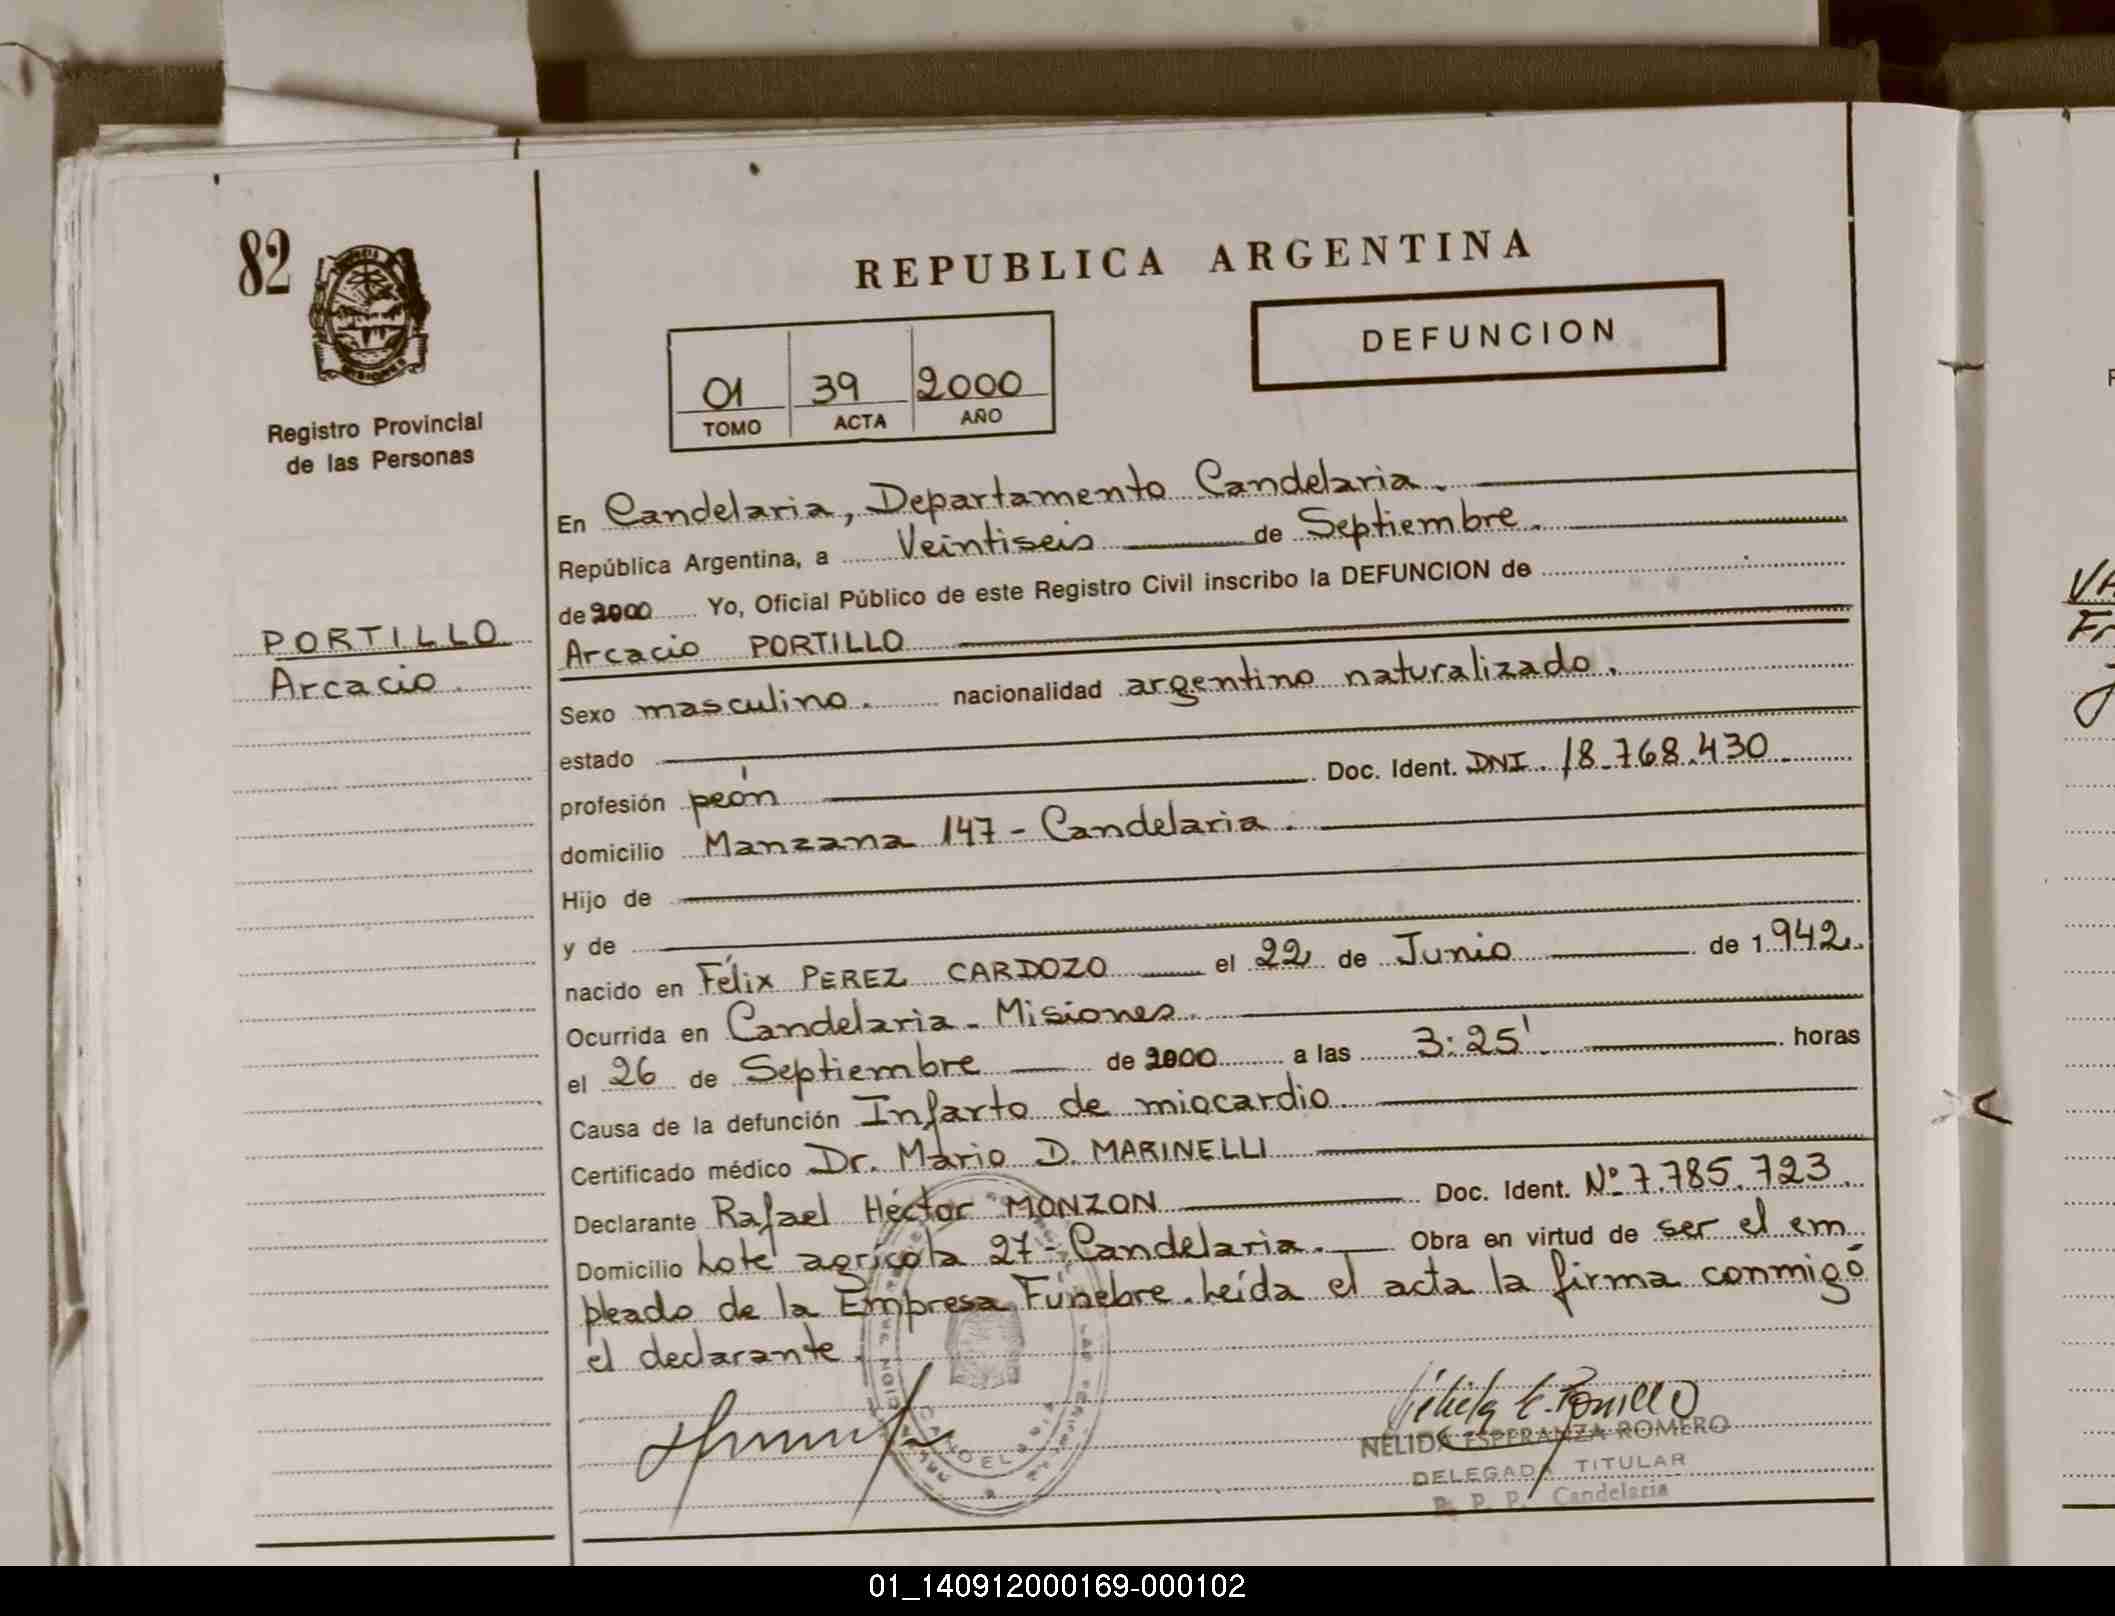 82
REPUBLICA ARGENTINA
DEFUNCION
01 39 2000
TOMO ACTA AÑO
Registro Provincial
de las Personas
PORTILLO
Arcacio
En Candelaria, Departamento Candelaria.
República Argentina, a Veintiseis de Septiembre.
de 2000 Yo, Oficial Público de este Registro Civil inscribo la DEFUNCION de
Arcacio PORTILLO
Sexo masculino. nacionalidad argentino naturalizado.
estado
profesión peón Doc. Ident. DNI. 18.768.430
domicilio Manzana 147 - Candelaria.
Hijo de
y de
nacido en Félix PEREZ CARDOZO el 22 de Junio de 1.942.
Ocurrida en Candelaria - Misiones.
el 26 de Septiembre de 2000 a las 3:25' horas
Causa de la defunción Infarto de miocardio
Certificado médico Dr. Mario D. MARINELLI
Declarante Rafael Héctor MONZON Doc. Ident. Nº 7.785.723.
Domicilio Lote agrícola 27 - Candelaria. Obra en virtud de ser el em
pleado de la Empresa Fúnebre. Leída el acta la firma conmigo
el declarante.
NELIDA ESPERANZA ROMERO
DELEGADA TITULAR
R. P. P. Candelaria
01_140912000169-000102